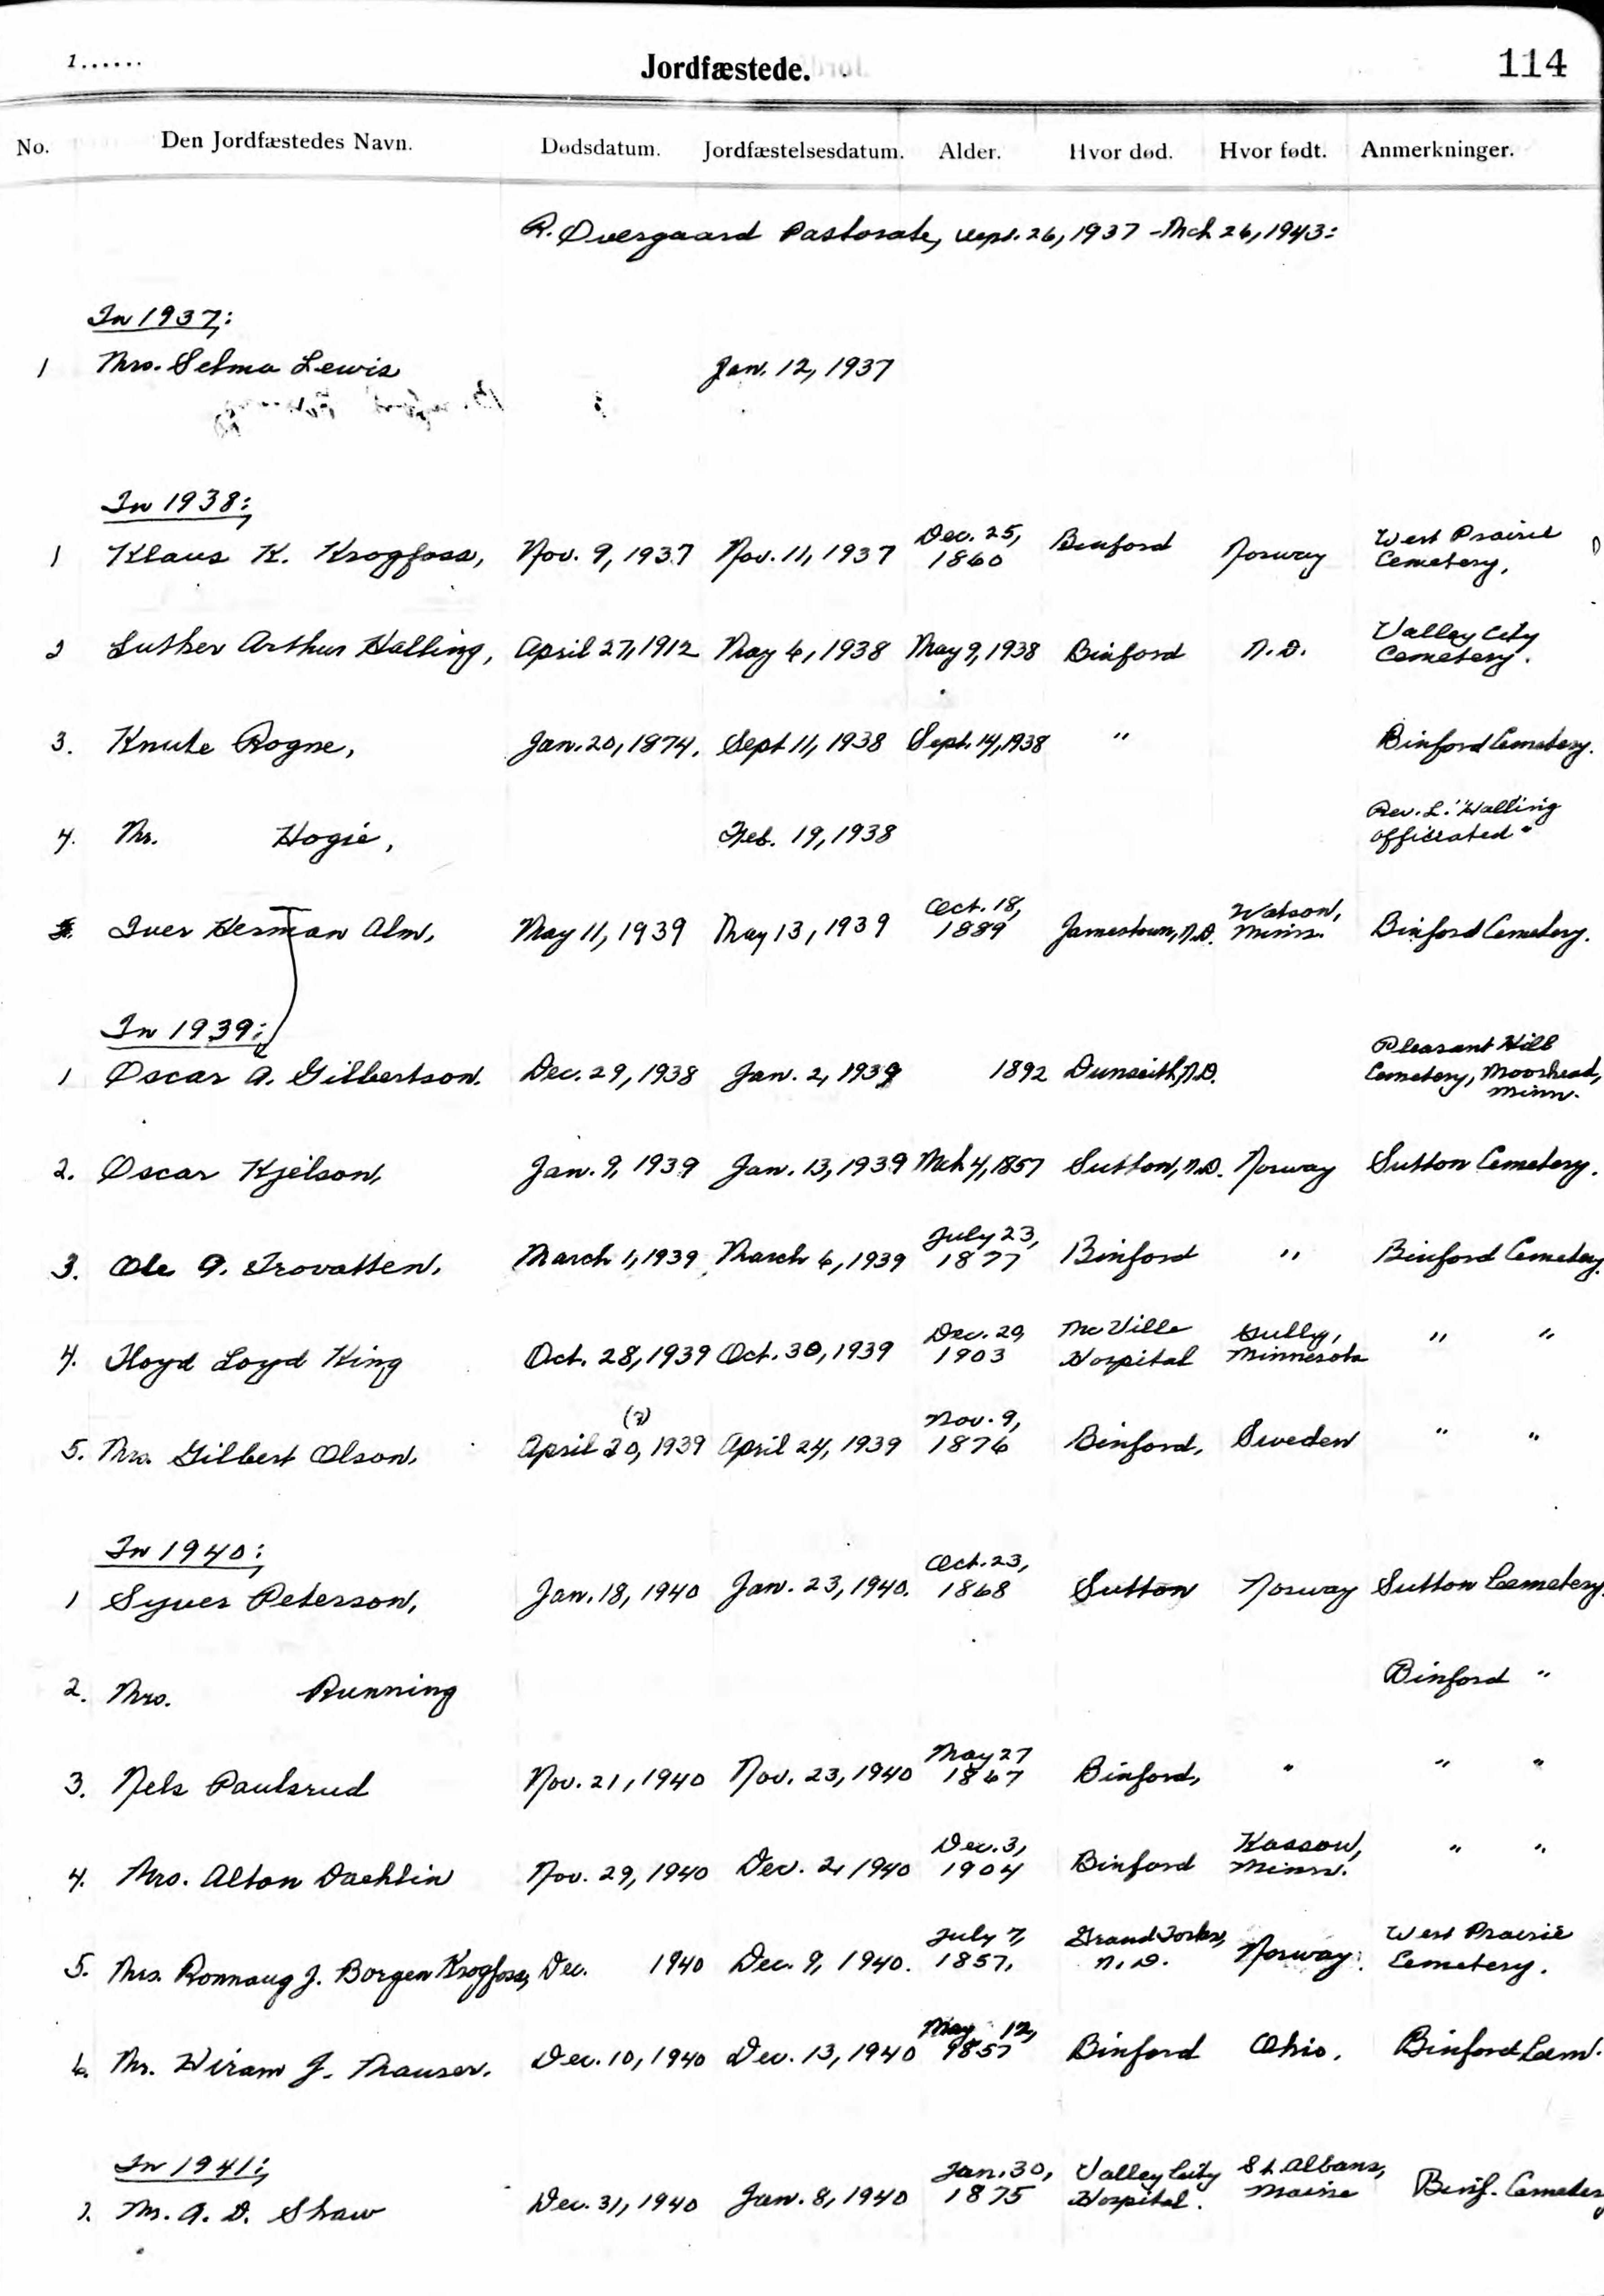 1......
Jordfæstede.
114
No. Den Jordfæstedes Navn. Dødsdatum. Jordfæstelsesdatum. Alder. Hvor død. Hvor født. Anmerkninger.
R. Overgaard Pastorate, Sept. 26, 1937 - Mch 26, 1943:
In 1937:
1 Mrs. Selma Lewis Jan. 12, 1937
In 1938:
1 Klaus K. Krogfoss, Nov. 9, 1937 Nov. 11, 1937 Dec. 25, 1860 Binford Norway West Prairie Cemetery.
2 Luther Arthur Halling, April 27, 1912 May 6, 1938 May 9, 1938 Binford N.D. Valley City Cemetery.
3. Knute Rogne, Jan. 20, 1874. Sept 11, 1938 Sept. 14, 1938 " Binford Cemetery.
4. Mr. Hogie, Feb. 19, 1938 Rev. L. "Halling officiated"
Iver Herman Alm, May 11, 1939 May 13, 1939 Oct. 18, 1889 Jamestown, N.D. Watson, Minn. Binford Cemetery.
In 1939:
1 Oscar A. Gilbertson. Dec. 29, 1938 Jan. 2, 1939 1892 Dunseith, N.D. Pleasant Hill Cemetery, Moorhead, Minn.
2. Oscar Kjelson, Jan. 9, 1939 Jan. 13, 1939 Mch 4, 1857 Sutton, N.D. Norway Sutton Cemetery.
3. Ole O. Trovatten. March 1, 1939 March 6, 1939 July 23, 1877 Binford " Binford Cemetery.
4. Floyd Loyd King Oct. 28, 1939 Oct. 30, 1939 Dec. 29, 1903 McVille Hospital Gully, Minnesota " "
5. Mrs. Gilbert Olson, April 20, 1939 (?) April 24, 1939 Nov. 9, 1876 Binford, Sweden " "
In 1940:
1 Syver Peterson, Jan. 18, 1940 Jan. 23, 1940. Oct. 23, 1868 Sutton Norway Sutton Cemetery.
2. Mrs. Running Binford "
3. Nels Paulsrud Nov. 21, 1940 Nov. 23, 1940 May 27 1867 Binford, " " "
4. Mrs. Alton Daehlin Nov. 29, 1940 Dec. 2, 1940 Dec. 3, 1904 Binford Kasson, Minn. " "
5. Mrs. Ronnaug J. Borgen Krogfoss, Dec. 1940 Dec. 9, 1940. July 7, 1857, Grand Forks, N.D. Norway. West Prairie Cemetery.
6. Mr. Hiram J. Mauser. Dec. 10, 1940 Dec. 13, 1940 May 12, 1857 Binford Ohio. Binford Cem.
In 1941:
1. Mr. A. D. Shaw Dec. 31, 1940 Jan. 8, 1940 Jan. 30, 1875 Valley City Hospital. St. Albans, Maine Binf. Cemetery